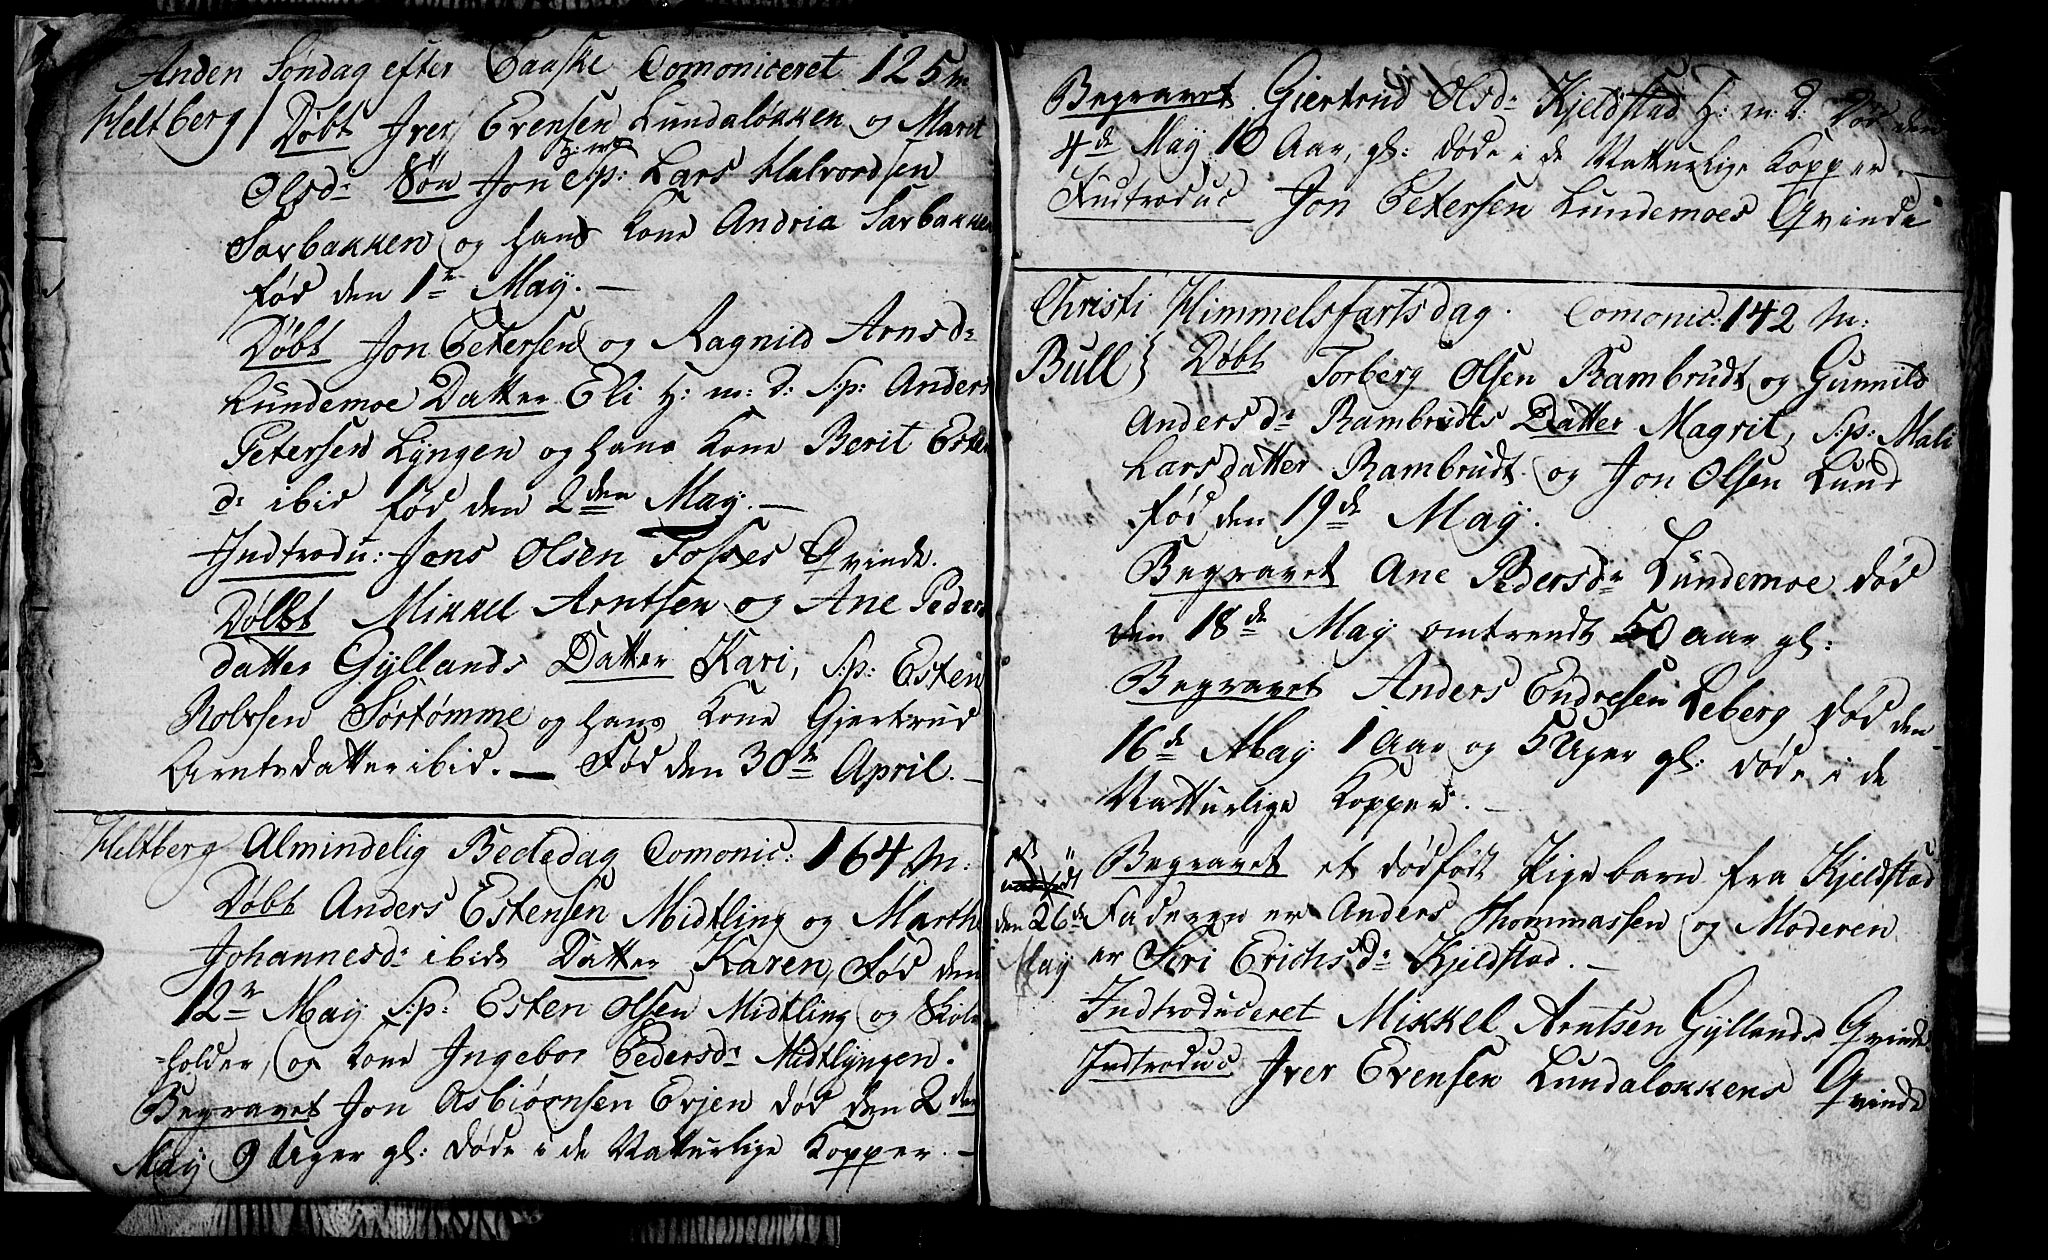 Anden Søndag efter Paaske Comoniceret 125 m
Heltberg Døbt Jver Evensen Lundaløkken og Marit
Olsd: Søn Jon H: m: d: Sp: Lars Halvordsen
Sarbakken og hans Kone Andria Sarbakken
fød den 1te May. —
Døbt Jon Petersen og Ragnild Arnsd:
Lundemoe Datter Eli H: m: d: Sp: Anders
Petersen Lyngen og hans Kone Berit Esten
d: ibid fød den 2den May. —
Indtrodu: Jens Olsen Fosses Qvinde.
Døbt Mikkel Arntsen og Ane Peders
datter Gyllands Datter Kari, Sp: Esten
Rolvsen Sørtømme og hans Kone Gjertrud
Arntsdatter ibid. — Fød den 30de April. —
Heltberg Almindelig Bededag Comonic: 164 m:
Døbt Anders Estensen Midtling og Marthe
Johannesd: ibid: Datter Karen, Fød den
12te May Sp: Esten Olsen Midtling og Skole
-holder, og Kone Ingebor Pedersd: Midtlyngen.
Begravet Jon Asbiørnsen Evjen død den 2den
May 9 Uger gl: døde i de Natturlige Kopper. —
Begravet Giertrud Olsd: Kjeldstad H: m: d: Død den
4de May 10 Aar, gl: døde i de Natturlige Kopper. —
Indtroduc Jon Petersen Lundemoes Qvinde
Christi Himmelsfartsdag. Comonic: 142 m:
Bull} Døbt Torberg Olsen Rambrudt og Gunnild
Andersd: Rambrudts Datter Magrit, Sp: Mali
Larsdatter Rambrudt og Jon Olsen Lund
fød den 19de May.
Begravet Ane Pedersd: Lundemoe død
den 18de May omtrendt 50 aar gl:
Begravet Anders Endresen Leberg død den
16de May 1 Aar og 5 Uger gl: døde i de
Natturlige Kopper. —
Begravet et dødfødt Pigebarn fra Kjeldstad
den 26de Faderen er Anders Thommassen og Moderen
May er Siri Erichsd: Kjeldstad. —
Indtroduceret Mikkel Arntsen Gyllands Qvinde
Indtroduc Jver Evensen Lundaløkkens Qvinde